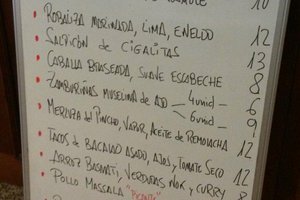 10
• ROBALIZA MARINADA, LIMA, ENELDO 12
• SALPICÓN DE CIGALITAS 13
• CABALLA BRASEADA, SUAVE ESCABECHE 8
• ZAMBURIÑAS MUSELINA DE AJO 4unid - 6
6unid - 9
• MERLUZA DEL PINCHO, VAPOR, ACEITE DE REMOLACHA 12
• TACOS DE BACALAO ASADO, AJOS, TOMATE SECO 12
• ARROZ BASMATI, VERDURAS WOK Y CURRY 8
• POLLO MASSALA "PICANTE"